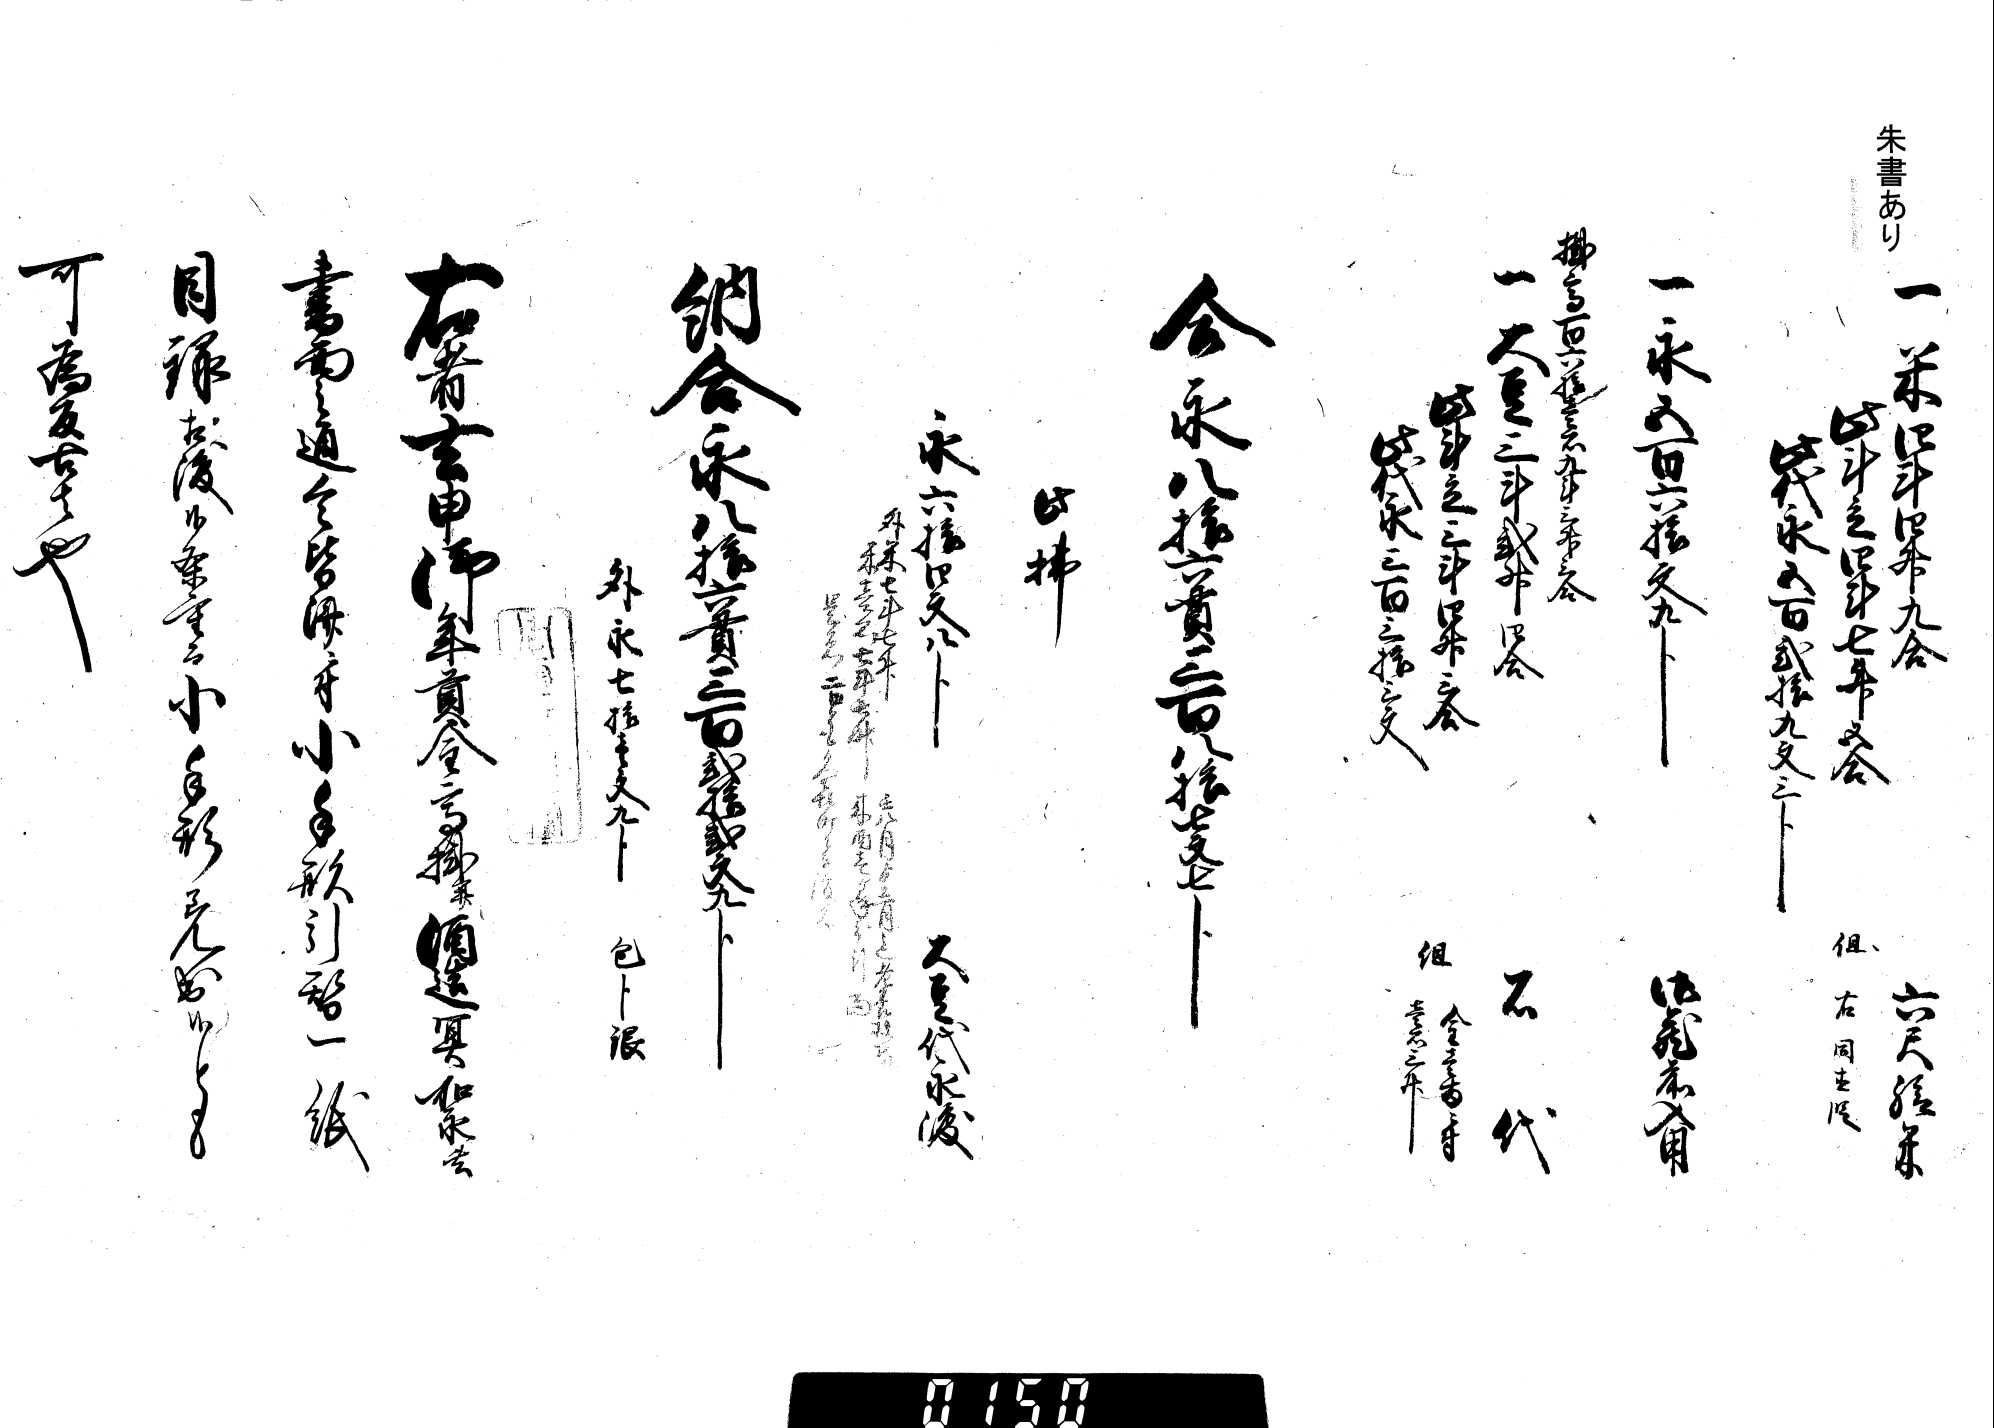 朱書あり
一 米四斗四升九合 六尺給米
此斗立四斗七升五合
此代永五百弐拾九文三分 但 右同直段
一 永五百六拾文九分 御蔵前入用
掛高百六拾壱石九斗三升三合
一 大豆三斗弐升四合 石代
此斗立三斗四升三合 但 金壱両ニ付
此代永三百三拾三文 壱石三升
合永八拾六貫三百八拾七文七分
此拂
永六拾四文八分 大豆代永渡
外米七斗七升
納合永八拾六貫三百弐拾弐文九分
外永七拾壱文九分 包分銀
右者去申御年貢金高掛并酒造冥加永共
書面之通令皆済ニ付小手形引替一紙
目録相渡候条重而小手形差出候とも
可為反古者也
0150